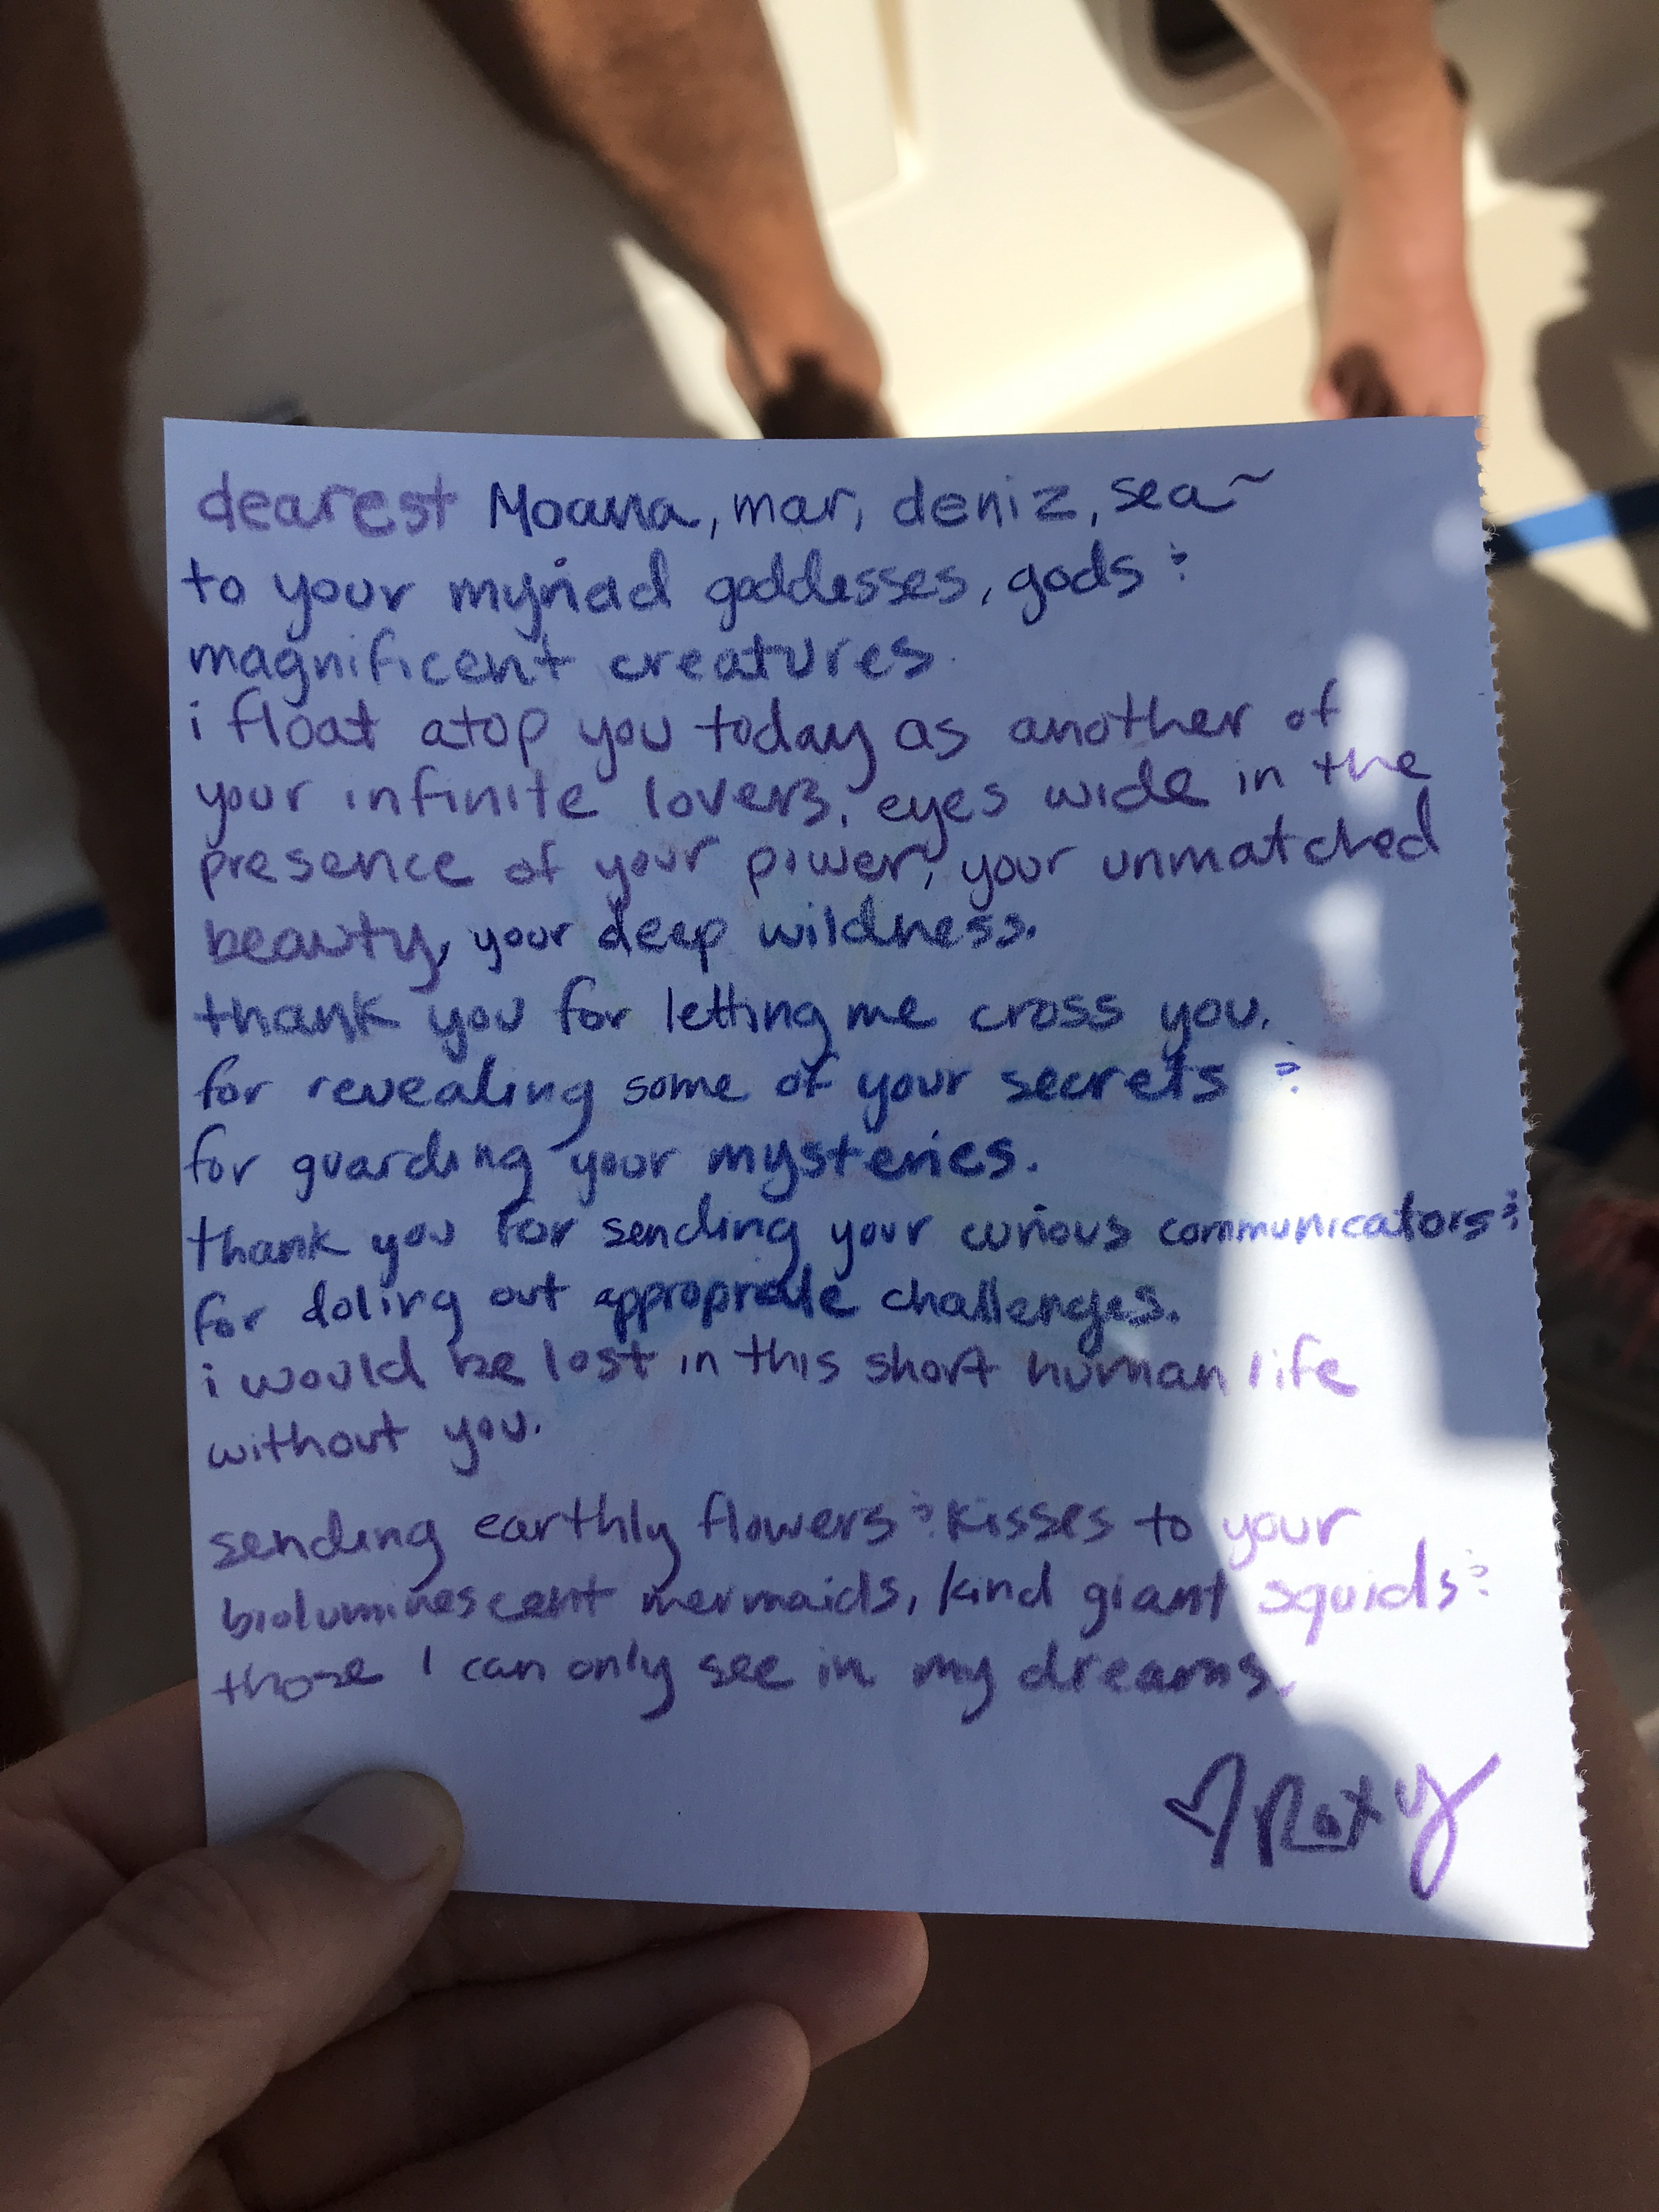 dearest Moana, mar, deniz, sea~
to your myriad goddesses, gods &
magnificent creatures.
i float atop you today as another of
your infinite lovers, eyes wide in the
presence of your power, your unmatched
beauty, your deep wildness.
thank you for letting me cross you.
for revealing some of your secrets &
for guarding your mysteries.
thank you for sending your curious communicators &
for doling out appropriate challenges.
i would be lost in this short human life
without you.
sending earthly flowers & kisses to your
bioluminescent mermaids, kind giant squids &
those I can only see in my dreams.
♡ Roxy